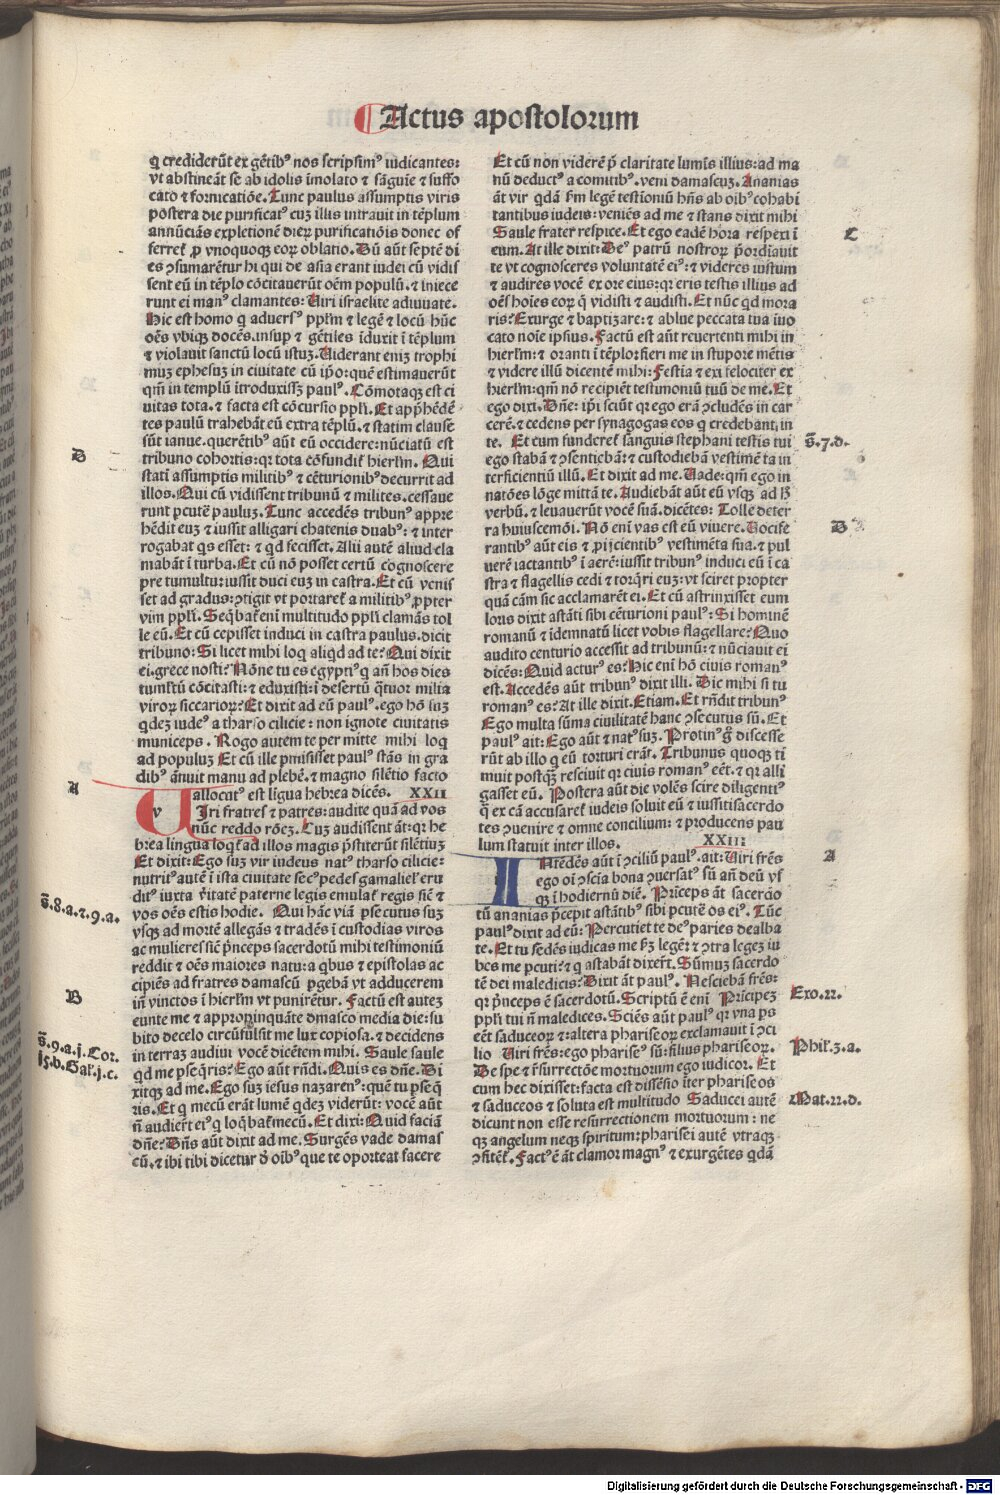 Actus apostolorum
q crediderūt ex gētibꝰ nos scripsimꝰ iudicantes:
vt abstineāt se ab idolis īmolato ⁊ sāguīe ⁊ suffo
cato ⁊ fornicatiōe. Tunc paulus assumptis viris
postera die purificatꝰ cuꝫ illis intrauit in tēplum
annūciās expletionē dierꝝ purificatiōis donec of
ferreť ꝓ vnoquoqꝫ eorꝝ oblatio. Dū aūt septē di
es ꝯsumarētur hi qui de asia erant iudei cū vidis
sent eū in tēplo cōcitauerūt oēm populū. ⁊ iniece
runt ei manꝰ clamantes: Uiri israelite adiuuate.
Hic est homo q̄ aduersꝰ ppl̄m ⁊ legē ⁊ locū hūc
oēs vbiqꝫ docēs. insup ⁊ gētiles īduxit ī tēplum
⁊ violauit sanctū locū istuꝫ. Uiderant eniꝫ trophi
muꝫ ephesuꝫ in ciuitate cū ip̄o: quē estimauerūt
qm̄ in templū ītroduxissꝫ paulꝰ. Cōmotaqꝫ est ci
uitas tota. ⁊ facta est cōcursio ppl̄i. Et app̄hēdē
tes paulū trahebāt eū extra tēplū. ⁊ statim clause
sūt ianue. querētibꝰ aūt eū occidere: nūciatū est
tribuno cohortis: qꝛ tota cōfundiť hierl̄m. Qui
stati assumptis militibꝰ ⁊ cēturionibꝰ decurrit ad
illos. Qui cū vidissent tribunū ⁊ milites. cessaue
runt pcutē pauluꝫ. Tunc accedēs tribunꝰ appre
hēdit euꝫ ⁊ iussit alligari chatenis duabꝰ: ⁊ inter
rogabat qs esset: ⁊ qd fecisset. Alii autē aliud cla
mabāt ī turba. Et cū nō posset certū cognoscere
pre tumultu: iussit duci euꝫ in castra. Et cū venis
set ad gradus: ꝯtigit vt portareť a militibꝰ ꝓpter
vim ppl̄i. Seq̄baťeni multitudo ppl̄i clamās tol
le eū. Et cū cepisset induci in castra paulus. dicit
tribuno: Si licet mihi loq̄ aliqd ad te? Qui dixit
ei. grece nosti? Nōne tu es egyptiꝰ q̄ an̄ hos dies
tumltū cōcitasti: ⁊ eduxisti: ī desertū q̄tuor milia
virorꝝ siccariorꝝ? Et dixit ad eū paulꝰ. ego hō suꝫ
qdeꝫ iudeꝰ a tharso cilicie: non ignote ciuitatis
municeps. Rogo autem te per mitte mihi loq̄
ad populuꝫ Et cū ille pmisisset paulꝰ stās in gra
dibꝰ ānuit manu ad plebē. ⁊ magno silētio facto
allocutꝰ est līgua hebrea dicēs. XXII
UIri fratres ⁊ patres: audite quā ad vos
nūc reddo rōeꝫ. Cuꝫ audissent āt: qꝛ he
brea lingua loq̄ť ad illos magis p̄stiterūt silētiuꝫ
Et dixit: Ego suꝫ vir iudeus natꝰ tharso cilicie:
nutritꝰ autē ī ista ciuitate secꝰ pedes gamaliel eru
ditꝰ iuxta v̄itatē paterne legis emulať regis sic̄ ⁊
vos oēs estis hodie. Qui hāc viā psecutus suꝫ
vsqꝫ ad mortē allegās ⁊ tradēs ī custodias viros
ac mulieres sic̄ p̄nceps sacerdotū mihi testimoniū
reddit ⁊ oēs maiores natu: a qbus ⁊ epistolas ac
cipiēs ad fratres damascū pgebā vt adducerem
in̄ vinctos ī hierl̄m vt punirētur. Factū est auteꝫ
eunte me ⁊ appropinquāte dmasco media die: su
bito decelo circūfulsit me lux copiosa. ⁊ decidens
in terraꝫ audiui vocē dicētem mihi. Saule saule
qd me pseq̄ris? Ego aūt rn̄di. Quis es dn̄e. Di
xitqꝫ ad me. Ego suꝫ iesus nazarenꝰ: quē tu pseq̄
ris. Et q̄ mecū erāt lumē qdeꝫ viderūt: vocē aūt
n̄ audierūt eiꝰ q̄ loq̄baťmecū. Et dixi: Quid faciā
dn̄e? Dn̄s aūt dixit ad me. Surgēs vade damas
cū. ⁊ ibi tibi dicetur d̄ oībꝰ que te oporteat facere
D
A
s̄.8.a.⁊.9.a.
B
s̄.9.a.j.Cor.
j5.b.Gal̄.j.c.
Et cū non viderē p̄ claritate lumīs illius: ad ma
nū deductꝰ a comitibꝰ. veni damascuꝫ. Ananias
āt vir qdā s̄m legē testioniū hn̄s ab oībꝰ cohabi
tantibus iudeis: veniēs ad me ⁊ stans dixit mihi
Saule frater respice. Et ego eadē hora respexi ī
eum. At ille dixit: Deꝰ patrū nostrorꝝ p̄ordiauit
te vt cognosceres voluntatē eiꝰ: ⁊ videres iustum
⁊ audires vocē ex ore eius: qꝛ eris testis illius ad
oēs hoīes eorꝝ q̄ vidisti ⁊ audisti. Et nūc qd mora
ris? Exurge ⁊ baptizare: ⁊ ablue peccata tua īuo
cato noīe ipsius. Factū est aūt reuertenti mihi in
hierl̄m: ⁊ oranti ī tēplo: fieri me in stupore mētis
⁊ videre illū dicentē mihi: Festia ⁊ exi velociter ex
hierl̄m: qm̄ nō recipiēt testimoniū tuū de me. Et
ego dixi. Dn̄e: ip̄i sciūt qꝛ ego erā ꝯcludēs in car
cerē. ⁊ cedens per synagogas eos q̄ credebant, in
te. Et cum funderetť sanguis stephani testis tui
ego stabā ⁊ ꝯsentiebā: ⁊ custodiebā vestimē ta in
terficientiū illū. Et dixit ad me. Uade: qm̄ ego in
natōes lōge mittā te. Audiebāt aūt eū vsqꝫ ad h̄
verbū. ⁊ leuauerūt vocē suā. dicētes: Tolle de ter
ra huiuscemōi. Nō eni vas est eū viuere. Uocife
rantibꝰ aūt eis ⁊ ꝓijcientibꝰ vestimēta sua. ⁊ pul
uerē iactantibꝰ ī aerē: iussit tribunꝰ induci eū ī ca
stra ⁊ flagellis cedi ⁊ torq̄ri euꝫ: vt sciret propter
quā cām sic acclamarēt ei. Et cū astrinxisset eum
loris dixit astāti sibi cēturioni paulꝰ: Si hominē
romanū ⁊ idemnatū licet vobis flagellare? Quo
audito centurio accessit ad tribunū: ⁊ nūciauit ei
dicēs: Quid acturꝰ es? Hic eni hō ciuis romanꝰ
est. Accedēs aūt tribunꝰ dixit illi. Dic mihi si tu
romanꝰ es? At ille dixit. Etiam. Et rn̄dit tribunꝰ
Ego multa sūma ciuilitatē hanc ꝯsecutus sū. Et
paulꝰ ait: Ego aūt ⁊ natꝰ suꝫ. Protinꝰ ḡ discesse
rūt ab illo q̄ eū torturi erāt. Tribunus quoqꝫ ti
muit postqꝫ resciuit qꝛ ciuis romanꝰ eēt. ⁊ qꝛ alli
gasset eū. Postera aūt die volēs scire diligentiꝰ
q̄ ex cā accusareť iudeis soluit eū ⁊ iussit sacerdo
tes ꝯuenire ⁊ omne concilium: ⁊ producens pau
lum statuit inter illos. XXIII
INtēdēs aūt ī ꝯciliū paulꝰ. ait: Uiri frēs
ego oī ꝯscia bona ꝯuersatꝰ sū an̄ deū vs
qꝫ ī hodiernū diē. Prīceps āt sacerdo
tū ananias p̄cepit astātibꝰ sibi pcutē os eiꝰ. Tūc
paulꝰ dixit ad eū: Percutiet te deꝰ paries dealba
te. Et tu sedēs iudicas me s̄ꝫ legē: ⁊ ꝯtra legeꝫ iu
bes me pcuti? ⁊ q̄ astabāt dixerūt. Sūmuꝫ sacerdo
tē dei maledicis? Dixit āt paulꝰ. Nesciebā frēs:
qꝛ p̄nceps ē sacerdotū. Scriptū ē eni Prīcipeꝫ
ppl̄i tui n̄ maledices. Sciēs aūt paulꝰ qꝛ vna ps
eēt saduceorꝝ ⁊: altera phariseorꝝ exclamauit ī ꝯci
lio Uiri frēs: ego phariseꝰ sū: filius phariseorꝝ.
De spe ⁊ r̄surrectōe mortuorum ego iudicor. Et
cum hec dixisset: facta est dissēsio īter phariseos
⁊ saduceos ⁊ soluta est multitudo Saducei autē
dicunt non esse resurrectionem mortuorum: ne
qꝫ angelum neqꝫ spiritum: pharisei autē vtraqꝫ
ꝯfitēť. Factꝰ ē āt clamor magnꝰ ⁊ exurgētes qdā
C
s̄.7.d.
D
A
Exo.22.
Phil̄.3.a.
Mat.22.d.
Digitalisierung gefördert durch die Deutsche Forschungsgemeinschaft - DFG